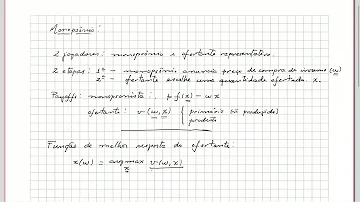 Monopsônio:
2 jogadores: monopsônio e ofertante representativo.
2 etapas: 1ª - monopsônio anuncia preço de compra do insumo (w)
2ª - ofertante escolhe uma quantidade ofertada x.
Payoffs: monopsonista: p f(x) - wx
ofertante: v(w, x) (primário
produto
Função de melhor resposta do ofertante:
x(w) = argmax v(w, x)
x